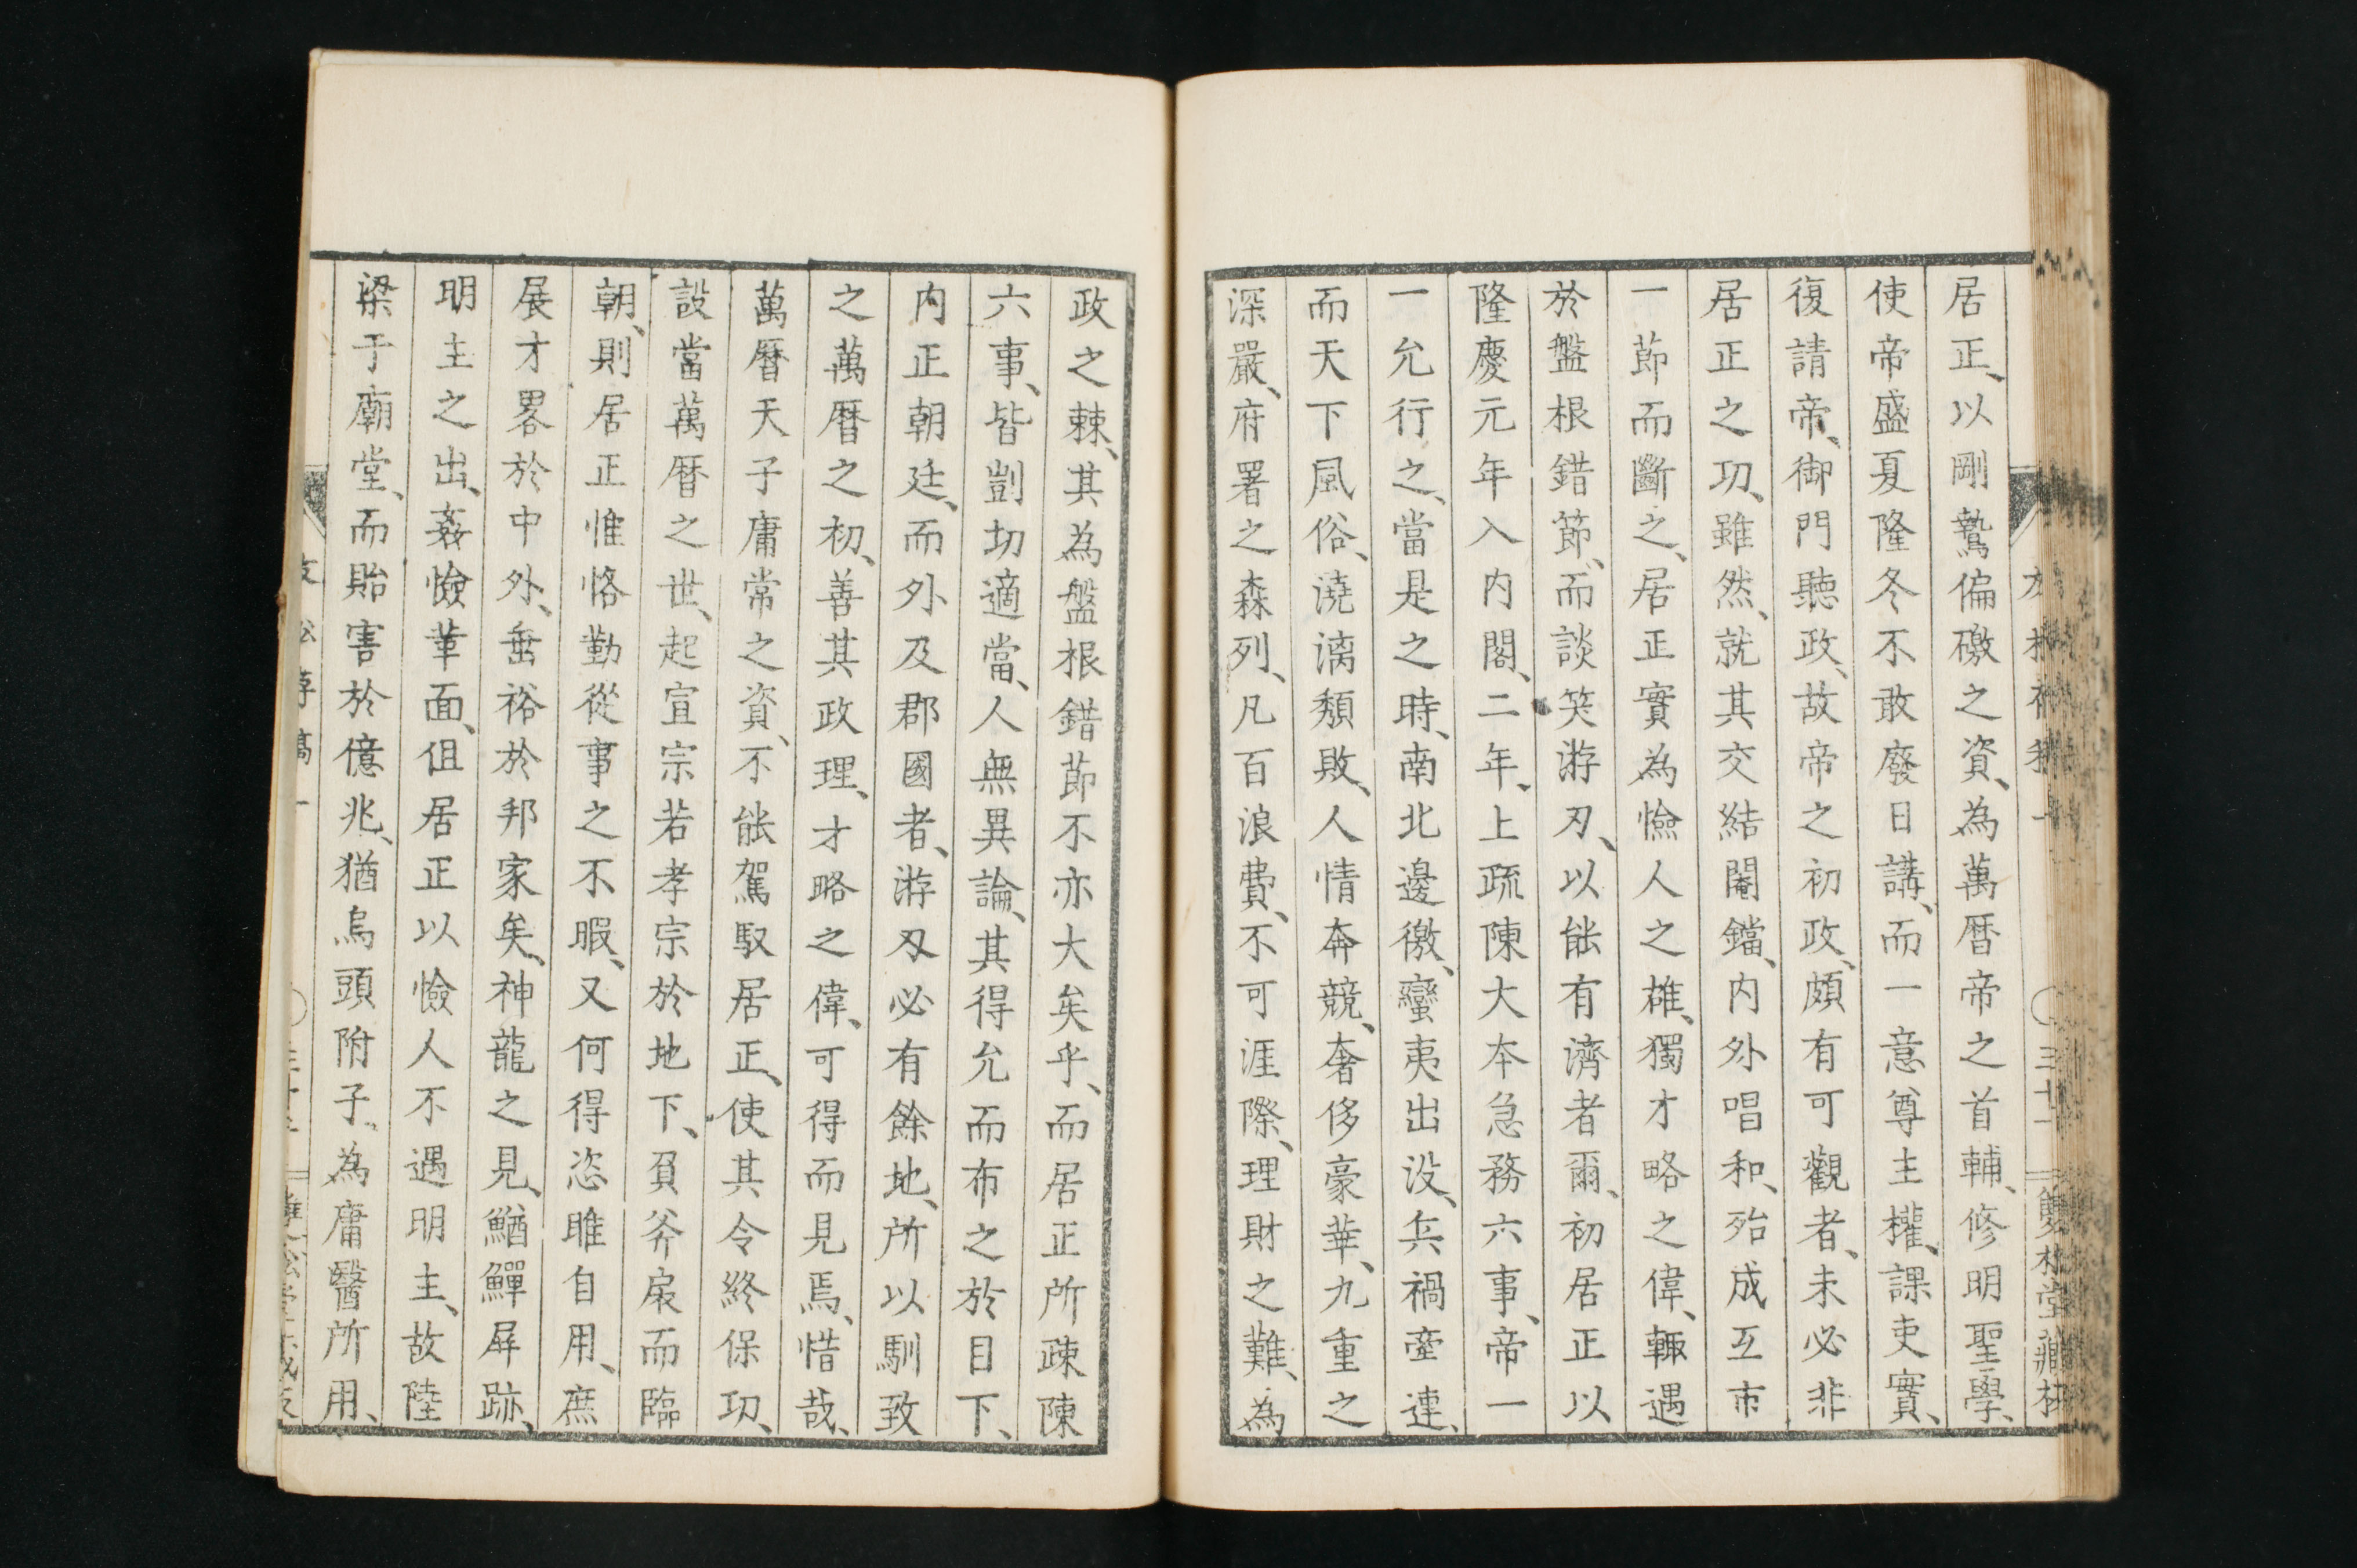 居正、以剛鷙偏礉之資、為萬曆帝之首輔、修明聖學、
使帝盛夏隆冬不敢廢日講、而一意尊主權、課吏實、
復請帝、御門聽政、故帝之初政、頗有可觀者、未必非
居正之功、雖然、就其交結閹鐺、内外唱和、殆成互市
一節而斷之、居正實為憸人之雄、獨才略之偉、輙遇
於盤根錯節、而談笑游刃、以能有濟者爾、初居正以
隆慶元年入内閣、二年、上疏陳大本急務六事、帝一
一允行之、當是之時、南北邊徼、蠻夷出没、兵禍牽連、
而天下風俗、澆漓頽敗、人情奔競、奢侈豪華、九重之
深嚴、府署之森列、凡百浪費、不可涯際、理財之難、為
政之棘、其為盤根錯節不亦大矣乎、而居正所疎陳
六事、皆剴切適當、人無異論、其得允而布之於目下、
内正朝廷、而外及郡國者、游刃必有餘地、所以馴致
之萬曆之初、善其政理、才略之偉、可得而見焉、惜哉、
萬曆天子庸常之資、不能駕馭居正、使其令終保功、
設當萬曆之世、起宣宗若孝宗於地下、負斧扆而臨
朝、則居正惟恪勤從事之不暇、又何得恣睢自用、庶
展才畧於中外、垂裕於邦家矣、神龍之見、鰌鱓屏跡、
明主之出、姦憸革面、但居正以憸人不遇明主、故陸
梁于廟堂、而貽害於億兆、猶烏頭附子、為庸醫所用、